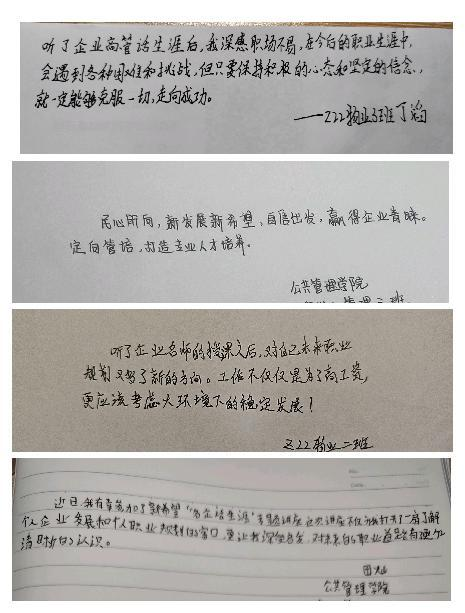 听了企业高管话生涯后,我深感职场不易,在今后的职业生涯中,
会遇到各种困难和挑战,但只要保持积极的心态和坚定的信念,
就一定能够克服一切,走向成功。
——Z22物业2班丁滔
民心所向,新发展新希望,自信出发,赢得企业青睐。
定向管培,打造专业人才培养。
公共管理学院
听了企业名师的授课之后,对自己未来职业
规划又有了新的方向。工作不仅仅是为了高工资,
更应该考虑大环境下的稳定发展!
Z22物业二班
近日,我有幸参加了新希望“名企话生涯”专题讲座,这次讲座不仅为我打开了一扇了解
个人企业发展和个人职业规划的窗口,更让我深受启发,对未来的职业道路有更加
清晰的认识。
公共管理学院